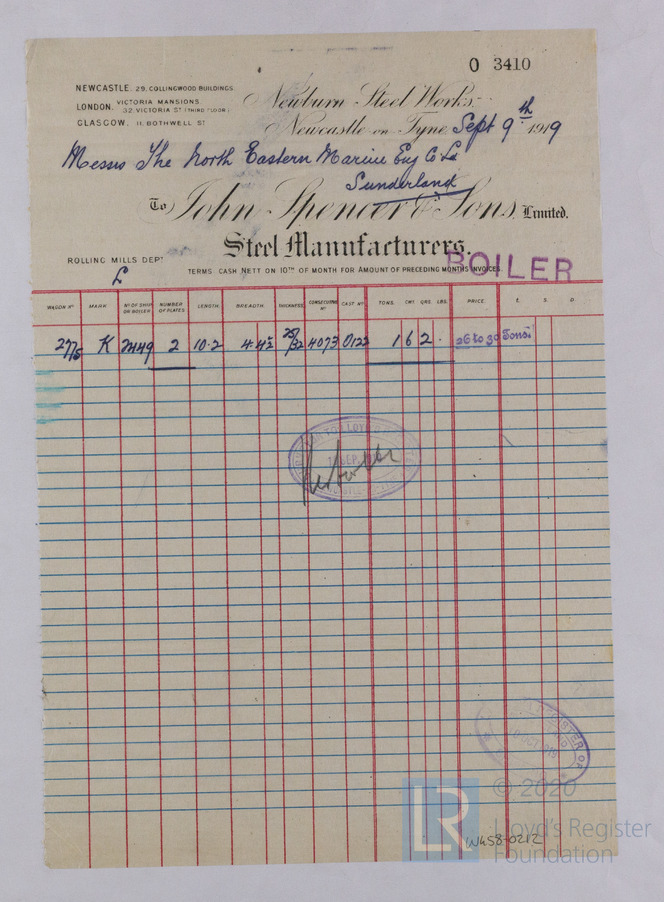 O 3410
NEWCASTLE. 29, COLLINGWOOD BUILDINGS.
LONDON. VICTORIA MANSIONS. 32, VICTORIA ST (THIRD FLOOR)
GLASGOW. 11, BOTHWELL ST
Newburn Steel Works.
Newcastle on Tyne, Sept 9th 1919
Messrs The North Eastern Marine Eng Co Ld
Sunderland
To John Spencer & Sons, Limited.
Steel Manufacturers.
ROLLING MILLS DEPT
TERMS. CASH NETT ON 10TH OF MONTH FOR AMOUNT OF PRECEDING MONTHS INVOICES.
BOILER
£
WAGON Nº MARK Nº OF SHIP OR BOILER NUMBER OF PLATES LENGTH. BREADTH. THICKNESS CONSECUTIVE Nº CAST Nº TONS. CWT. QRS. LBS. PRICE. £. S. D.
2775 K 2449 2 10.2 4.4½ 25/32 4073 0122 1 6 2 . 26 to 30 Tons.
SEP
OCT 1919
© 2020
LR Lloyd's Register
Foundation
W658-0212